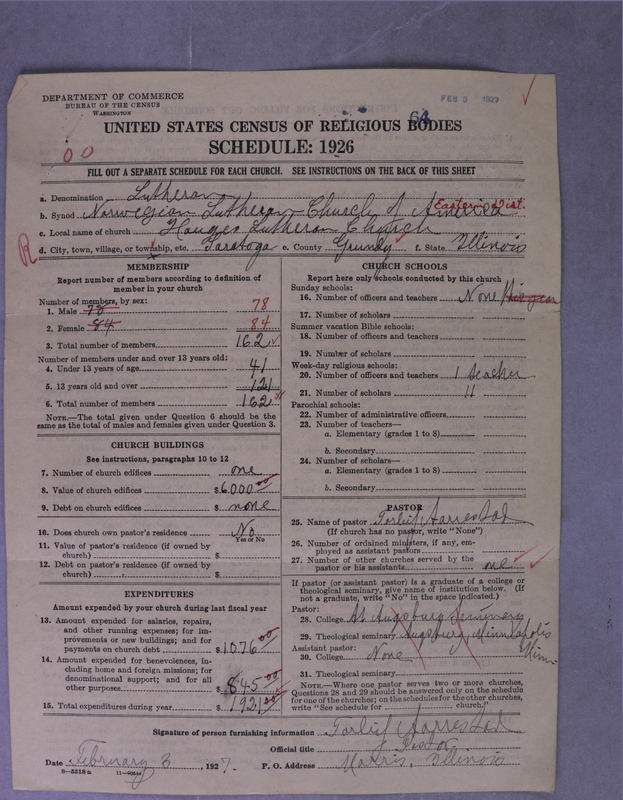 DEPARTMENT OF COMMERCE
BUREAU OF THE CENSUS
WASHINGTON
FEB 5 1927
64
UNITED STATES CENSUS OF RELIGIOUS BODIES
SCHEDULE: 1926
00
FILL OUT A SEPARATE SCHEDULE FOR EACH CHURCH. SEE INSTRUCTIONS ON THE BACK OF THIS SHEET
a. Denomination Lutheran
b. Synod Norwegian Lutheran Church of America Eastern Dist.
c. Local name of church Hauges Lutheran Church
R
d. City, town, village, or township, etc. Saratoga e. County Grundy f. State Illinois
MEMBERSHIP
Report number of members according to definition of member in your church
Number of members, by sex:
1. Male 78 78
2. Female 84 84
3. Total number of members 162
Number of members under and over 13 years old:
4. Under 13 years of age 41
5. 13 years old and over 121
6. Total number of members 162
NOTE.—The total given under Question 6 should be
same as the total of males and females given under Question 3.
CHURCH BUILDINGS
See instructions, paragraphs 10 to 12
7. Number of church edifices one
8. Value of church edifices $6000.00
9. Debt on church edifices $ none
10. Does church own pastor's residence No
Yes or No
11. Value of pastor's residence (if owned by
church) $
12. Debt on pastor's residence (if owned by
church) $
EXPENDITURES
Amount expended by your church during last fiscal year
13. Amount expended for salaries, repairs,
and other running expenses; for im-
provements or new buildings; and for
payments on church debt $1076.00
14. Amount expended for benevolences, in-
cluding home and foreign missions; for
denominational support; and for all
other purposes 845.00
15. Total expenditures during year $1921.00
CHURCH SCHOOLS
Report here only schools conducted by this church
Sunday schools:
16. Number of officers and teachers None
17. Number of scholars
Summer vacation Bible schools:
18. Number of officers and teachers
19. Number of scholars
Week-day religious schools:
20. Number of officers and teachers 1 teacher
21. Number of scholars 11
Parochial schools:
22. Number of administrative officers
23. Number of teachers—
a. Elementary (grades 1 to 8)
b. Secondary
24. Number of scholars—
a. Elementary (grades 1 to 8)
b. Secondary
PASTOR
25. Name of pastor Torleif Aarrestad
(If church has no pastor, write "None")
26. Number of ordained ministers, if any, em-
ployed as assistant pastors
27. Number of other churches served by the
pastor or his assistants one
If pastor (or assistant pastor) is a graduate of a college or
theological seminary, give name of institution below. (If
not a graduate, write "No" in the space indicated.)
Pastor:
28. College At Augsburg Seminary
29. Theological seminary Augsburg Minneapolis
Minn.
Assistant pastor:
30. College None
31. Theological seminary
NOTE.—Where one pastor serves two or more churches,
Questions 28 and 29 should be answered only on the schedule
for one of the churches; on the schedules for the other churches,
write "See schedule for church."
Signature of person furnishing information Torleif Aarrestad
Official title Pastor
Date February 3, 1927. P. O. Address Morris, Illinois
8—5518a